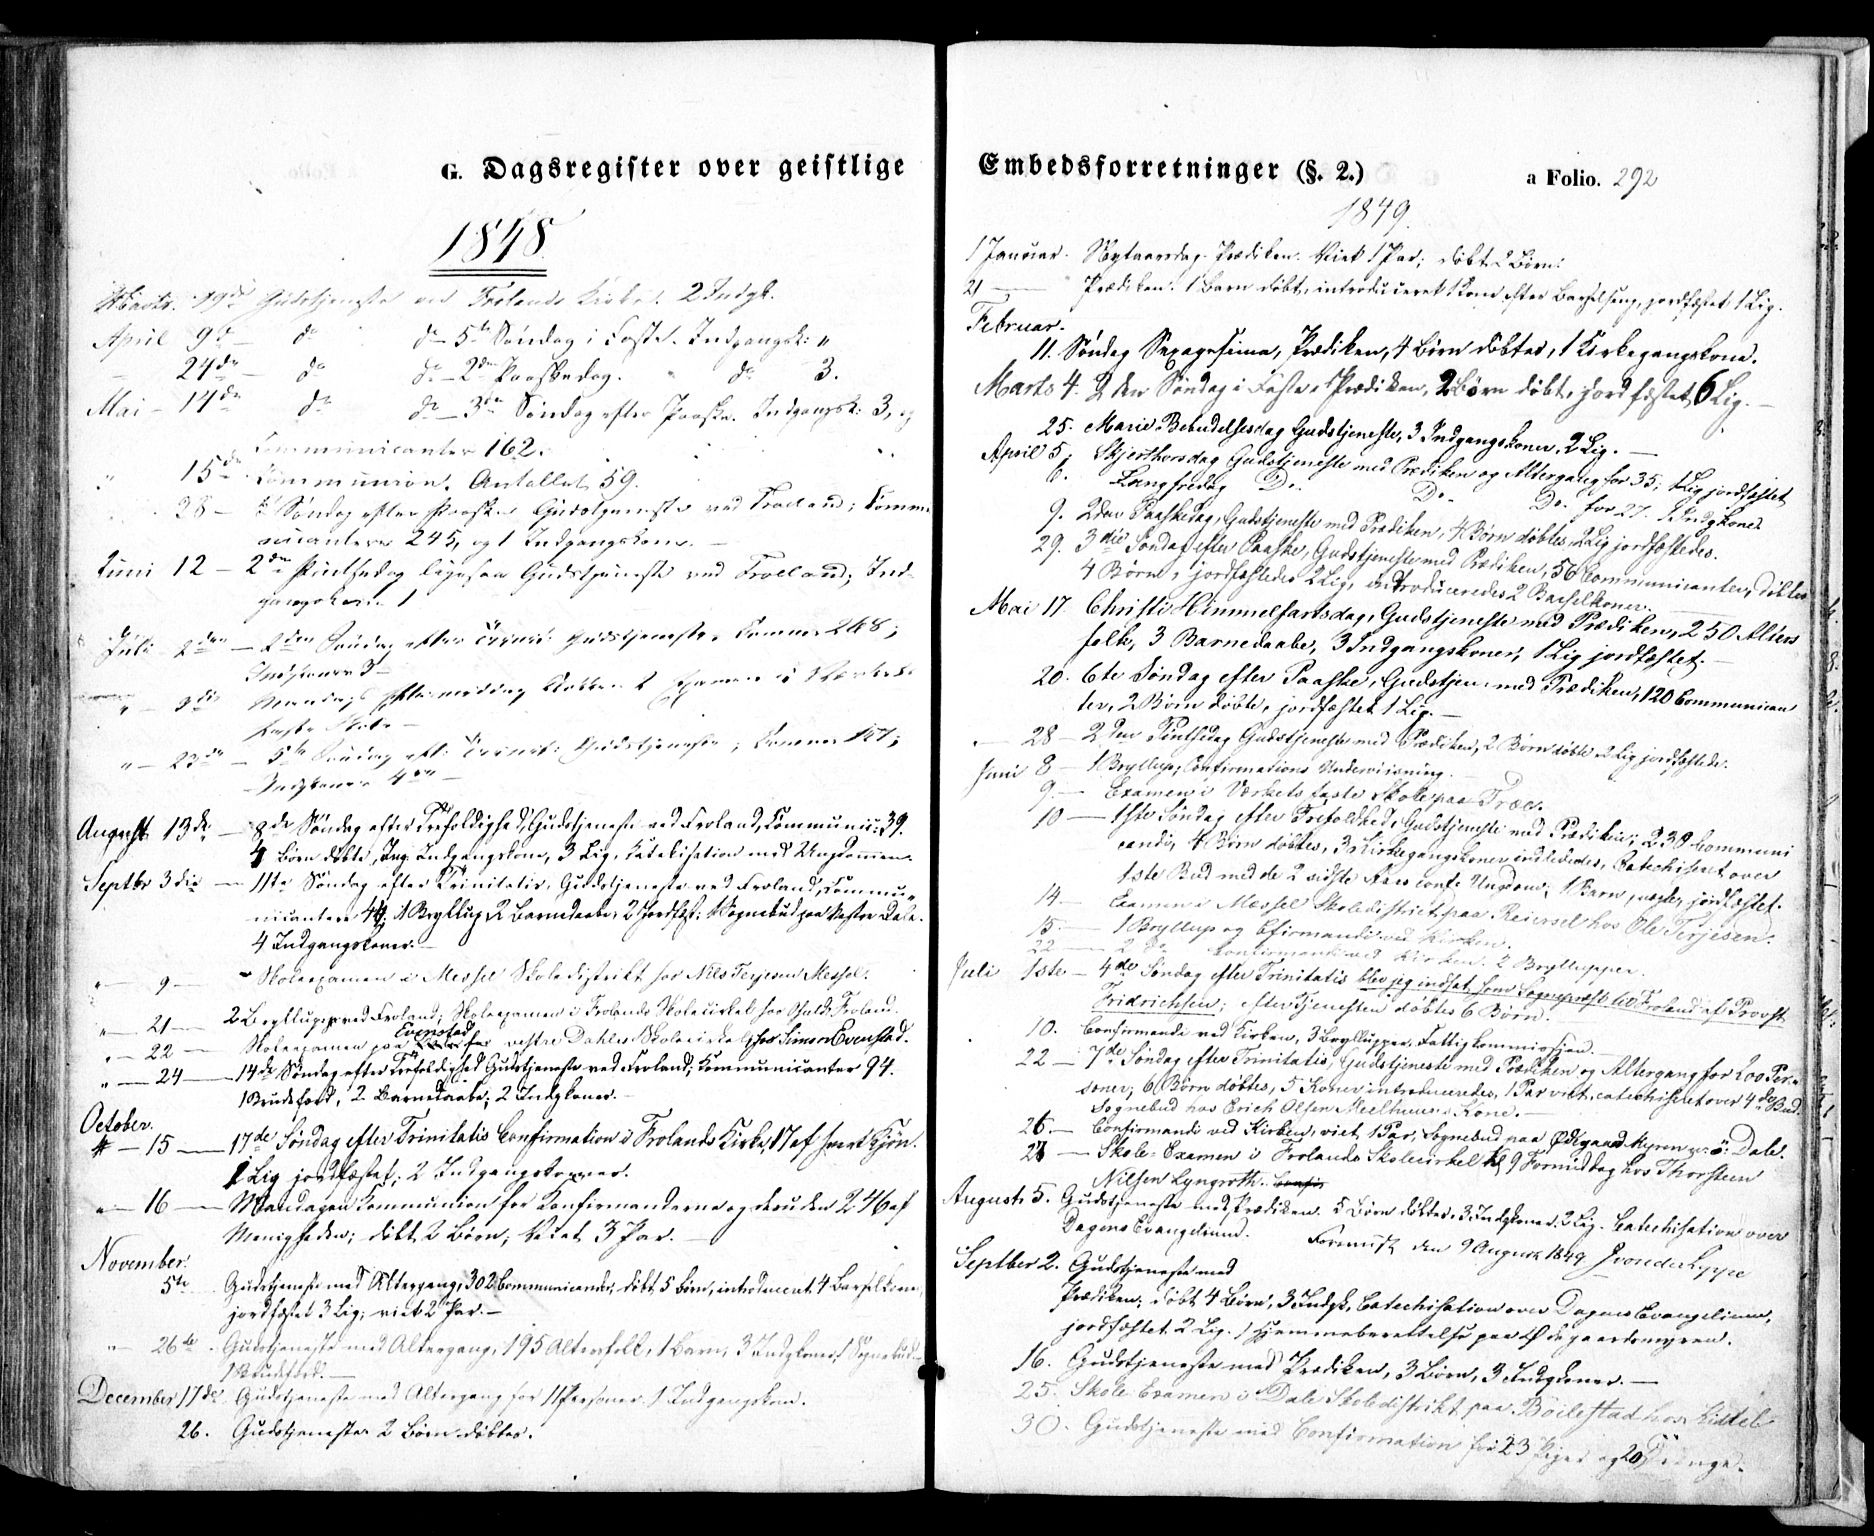 G. Dagsregister over geistlige
1848.
Marts 19de Gudstjeneste ved Frolands Kirke. 2 Indgk.
April 9de do do 5te Søndag i Faste. Indgangsk: "
24de do do 2den Paaskedag. " do 3.
Mai 14de do do 3die Søndag efter Paaske. Indgangsk: 3, og
Communicanter 162.
" 15de Communion. Antallet 59.
28 – Søndag efter Paaske Gudstjeneste ved Froland; Commu
nicantere 245, og 1 Indgangskone. –
Juni 12 – 2den Pintsedag ligesaa Gudstjeneste ved Froland; Ind-
gangskone 1
Juli 2den – 2den Søndag efter Trinit: Gudstjeneste, Commun 268;
Indgkoner 3 –
" – 3die Mandags Eftermiddag Klokken 2 Examen i Værkets
faste Skole –
" – 23de – 5te Søndag eft: Trinit: Gudstjeneste; Commun 127;
Indgkoner 4re –
August 13de – 8de Søndag efter Trefoldighed, Gudstjeneste ved Froland, Communic: 39.
4 Børn døbte, Ing: Indgangskone, 3 Lig, Katekisation med Ungdommen.
Septbr 3die – 11te Søndag efter Trinitatis, Gudstjeneste ved Froland, Commu-
nicantere 44; 1 Bryllup, 2 Barnedaabe, 2 Jordfæst; 1 Sognebud paa Vestre Dale.
4 Indgangskoner. –
" – 9 – Skoleexamen i Messel Skoledistrikt hos Nils Terjesen Messel.
" – 21 – 2 Brylluper ved Froland; Skoleexamen i Frolands Skolecirkel hos Osuld Froland.
" – 22 – Skoleexamen paa Evenstad for vestre Dahles Skolecirkel hos Simon Evenstad.
" – 24 – 14de Søndag efter Trefoldighed Gudstjeneste ved Froland; Communicanter 94.
1 Brudefærd, 2 Barnedaabe, 2 Indgkoner. –
October.
" – 15 – 17de Søndag efter Trinitatis Confirmation i Frolands Kirke, 17 af hvert Kjøn.
1 Lig jordfæstet; 2 Indgangskoner.
" – 16 – Mandagen Communion for Konfirmanderne og desuden 246 af
Menigheden; døbt 2 Børn; Viet 3 Par. –
November.
5te Gudstjeneste med Altergang, 302 Communicanter, døbt 5 Børn, introduceret 4 Barselkoner,
jordfæstet 3 Lig, viet 2 Par. –
" – 26de Gudstjeneste med Altergang, 195 Altersfolk, 1 Barn, 3 Indgkoner, 1 Sognebud
1 Brudefærd. –
December 17de Gudstjeneste med Altergang for 11 Personer. 1 Indgangskone.
26. Gudstjeneste 2 Børn døbtes.
Embedsforretninger (§. 2.)
a Folio. 292
1849.
1 Januar. Nytaarsdag. Prædiken. Viet 1 Par; døbt 2 Børn.
21 – " Prædiken. 1 Barn døbt, introduceret 1 Kone efter Barselseng, jordfæstet 1 Lig.
Februar.
11. Søndag Sexagesima, Prædiken, 4 Børn døbtes, 1 Kirkegangskone.
Marts 4. 2den Søndag i Faste, Prædiken, 2 Børn døbt, jordfæstet 6 Lig. –
25. Mariæ Bebudelsesdag Gudstjeneste, 3 Indgangskoner, 2 Lig. –
April 5. Skjærthorsdag Gudstjeneste med Prædiken og Altergang for 35; 1 Lig jordfæstet
6. Langfredag Do. Do. Do. for 27. 1 Indgkone
9. 2den Paaskedag, Gudstjeneste med Prædiken, 4 Børn døbtes, 2 Lig jordfæstedes.
29. 3die Søndag efter Paaske, Gudstjeneste med Prædiken, 56 Communicanter, døbtes
4 Børn, jordfæstedes 2 Lig, introduceredes 2 Barselkoner. –
Mai 17. Christi Himmelfartsdag, Gudstjeneste med Prædiken, 250 Alters
folk, 3 Barnedaabe, 3 Indgangskoner, 1 Lig jordfæstet. –
20. 6te Søndag efter Paaske, Gudstjen. med Prædiken, 120 Communican
ter, 2 Børn døbte, jordfæstet 1 Lig. –
– 28 – 2den Pintsedag Gudstjeneste med Prædiken, 2 Børn døbte, 2 Lig jordfæstede.
Juni 8 – 1 Bryllup, Confirmations Underviisning.
9. – Examen i Værkets faste Skole paa Træe.
10 – 1ste Søndag efter Trefoldhed, Gudstjeneste med Prædiken; 230 Communi
candi, 4 Børn døbtes, 3 Kirkegangskoner indlededes, Catechiseret over
1ste Bud med de 2 sidste Aars conf: Ungdom; 1 Barn jordfæstet.
14. Examen i Messel Skoledistrict paa Reiersel hos Ole Terjesen.
15. – 1 Bryllup og Cfirmander ved Kirken.
22 – 2 Do Confirmander ved Kirken. 2 Brylluper.
Juli 1ste – 4de Søndag efter Trinitatis blev jeg indsat som Sognepræst til Froland af Provst
Fridrichsen; efter Tjenesten døbtes 6 Børn.
10. Confirmande ved Kirken, 3 Brylluper. Fattigkommission.
22 – 7de Søndag efter Trinitatis, Gudstjeneste med Prædiken og Altergang for 200 Per-
soner; 6 Børn døbtes, 5 Koner introduceredes, 1 Par viet, catechiseret over 4de Bud.
Sognebud hos Erich Olsen Mælhuus's Kone. –
26. – Confirmande ved Kirken, viet 1 Par; Sognebud paa Ødegaardsmyren p. ö: Dale.
27 – Skole-Examen i Frolands Skolecirkel Kl 9 Formiddag hos Thorsteen
Nilsen Lyngroth.
August 5. Gudstjeneste med Prædiken. 5 Børn døbtes, 3 Indgkoner, 2 Lig. Catechisation over
Dagens Evangelium. Foreviist den 9 August 1849 J von der Lippe
Septber 2. Gudstjeneste med
Prædiken; døbt 4 Børn, 3 Indgk, Catechisation over Dagens Evangelium,
jordfæstet 2 Lig. 1 Hjemmeberettelse paa Ødegaardsmyren.
16. Gudstjeneste med Prædiken, 3 Børn, 3 Indgkoner. –
25. Skole Examen i Dale Skoledistrikt paa Böilestad hos Kittel
30. Gudstjeneste med Confirmation for 23 Piger og 20 Drenge.